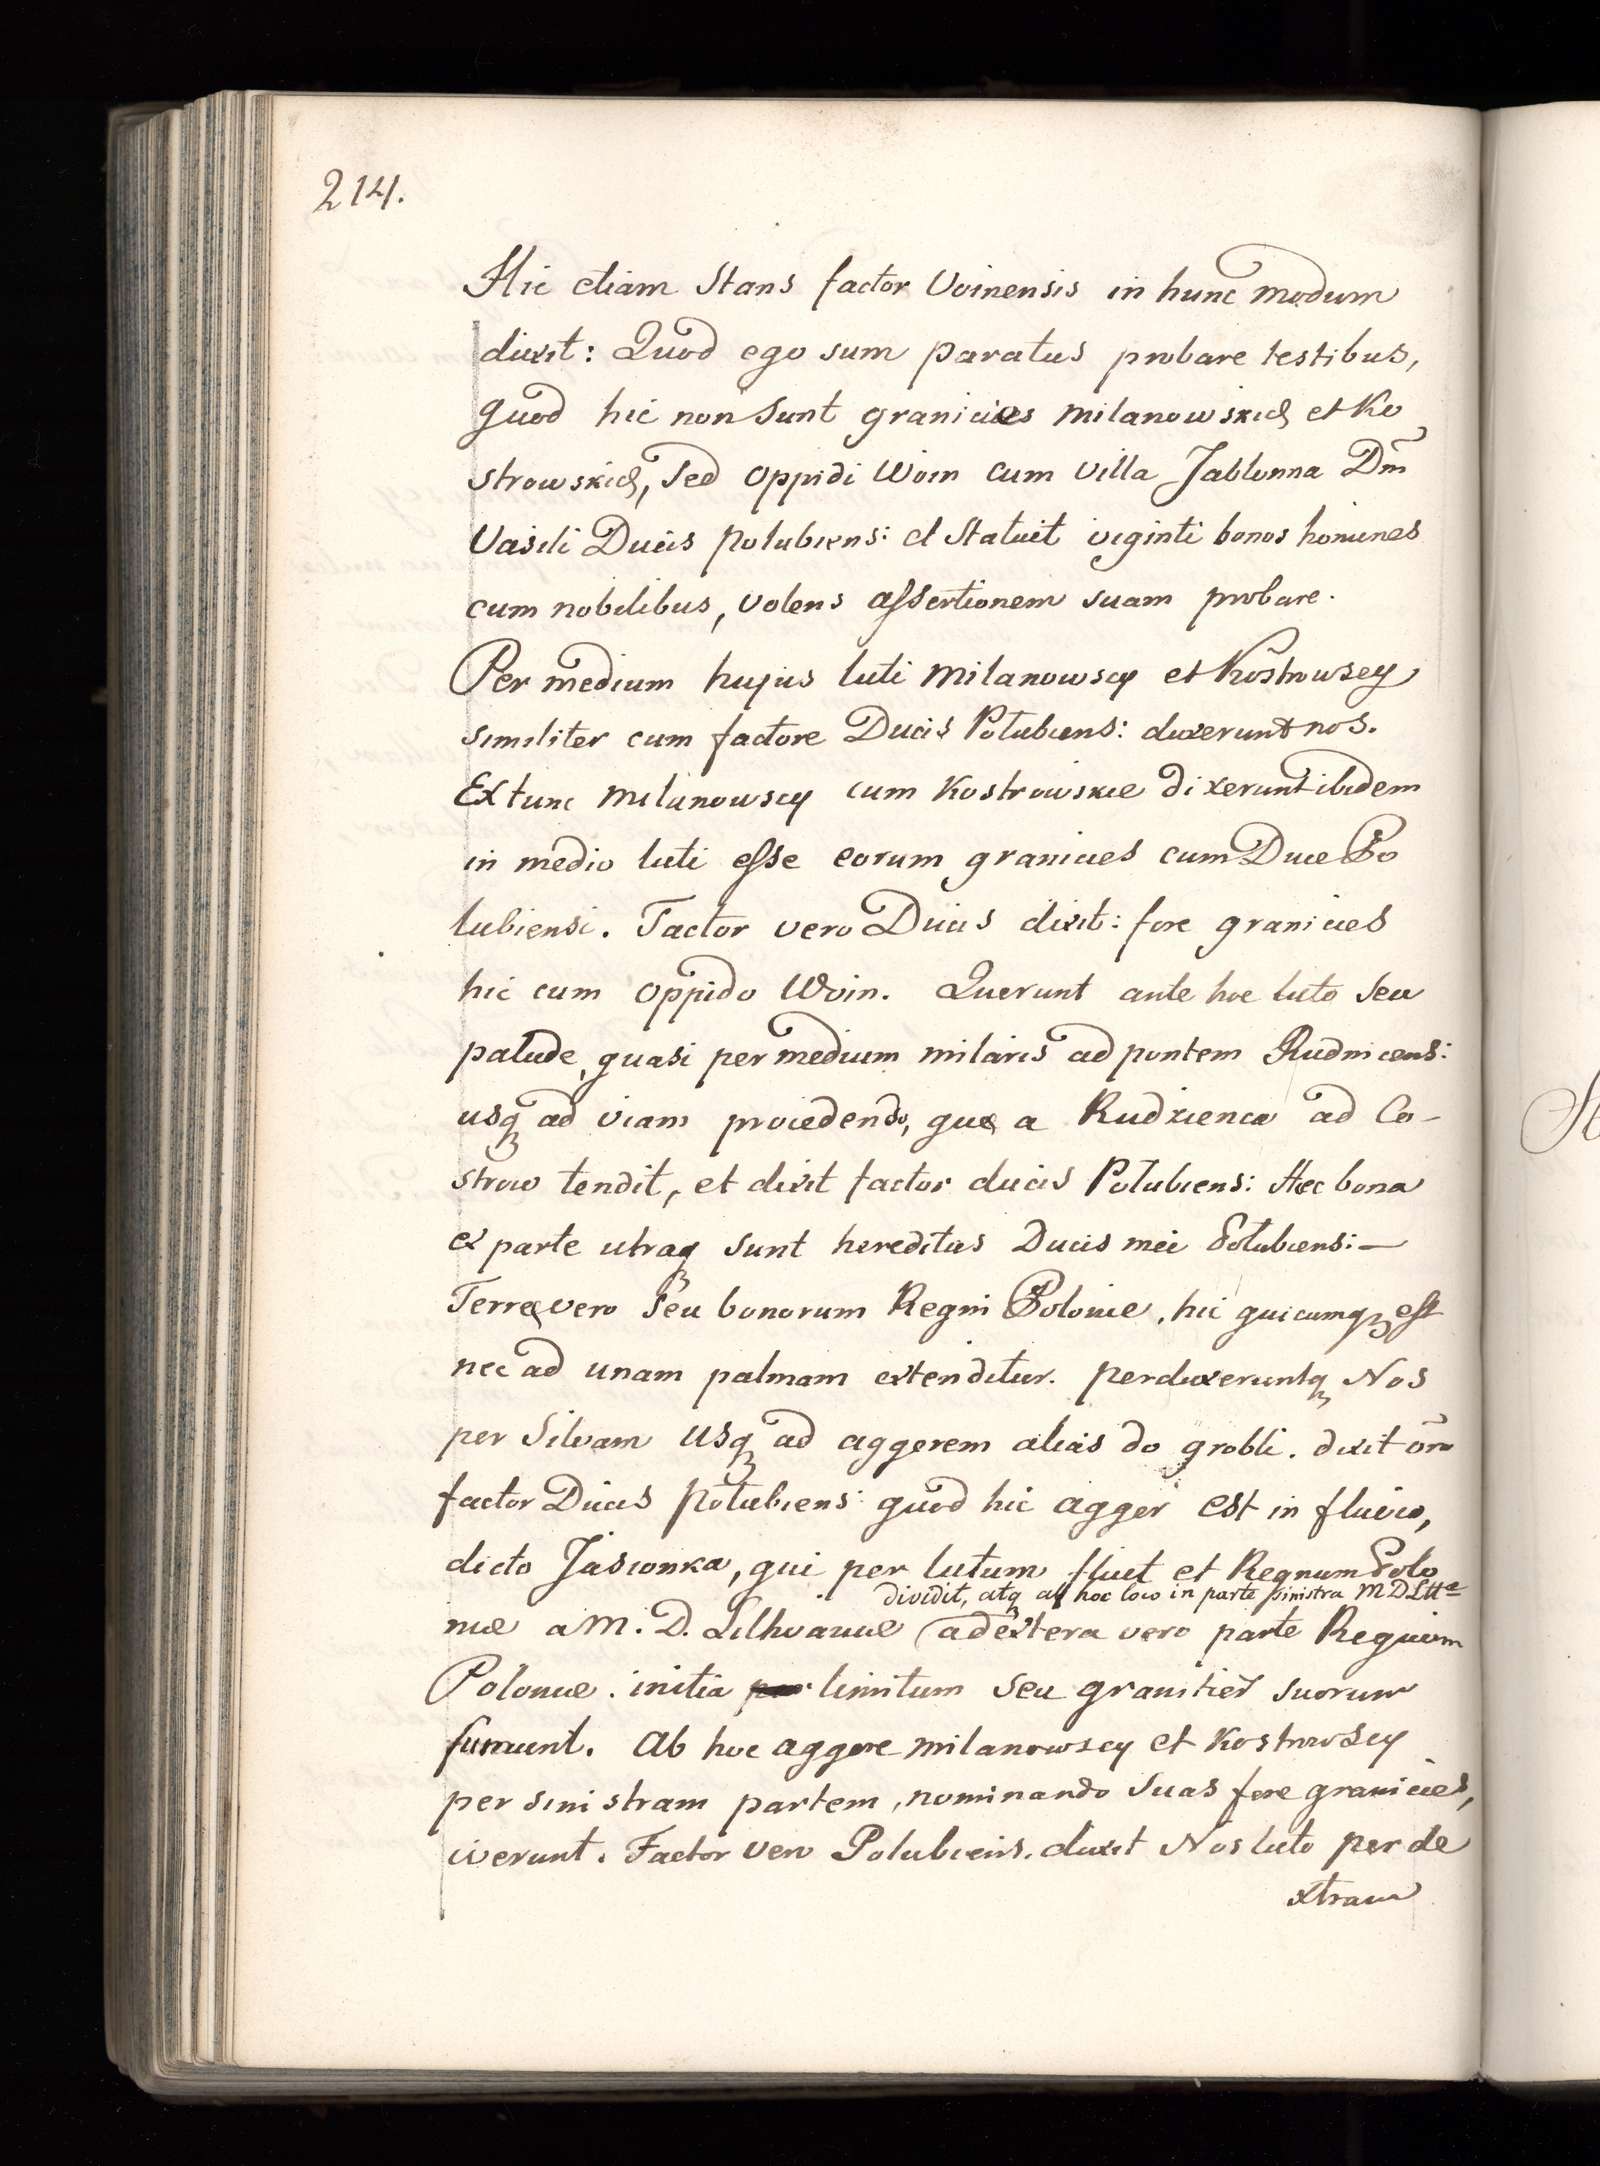 214.
Hic etiam Stans factor Voinensis in hunc modum
dixit: Quod ego sum paratus probare testibus,
quod hic non sunt granicies Milanowskich et Ko
strowskich, Sed oppidi Woin cum villa Jablonna Dm̃
Vasili Ducis Polubiens: et Statuit viginti bonos homines
cum nobilibus, volens assertionem suam probare.
Per medium hujus luti Milanowscy et Kostrowscy
similiter cum factore Ducis Polubiens: duxerunt nos.
Ex tunc Milanowscy cum Kostrowskie dixerunt ibidem
in medio luti esse eorum granicies cum Duce Po
lubiensi. Factor vero Ducis dixit: fore granicies
hic cum oppido Woin. Querunt ante hoc luto seu
palude, quasi per medium milaris ad pontem Rudnicens:
usq ad viam procedendo, quæ a Rudzienca ad Co-
strow tendit, et dixit factor ducis Polubiens: Hec bona
ex parte utraq sunt hereditas Ducis mei Polubiens: —
Terre vero seu bonorum Regni Polonie, hic quicumq est
nec ad unam palmam extenditur. perduxeruntq Nos
per Silvam usq ad aggerem alias do grobli. dixit
factor Ducis Polubiens: quod hic agger est in fluvio,
dicto Jasionka, qui per lutum fluit et Regnum Polo
dividit, atq ab hoc loco in parte sinistra M D Ltt̃e
niæ a M. D. Lithvaniæ (a dextera vero parte Regnum
Poloniæ. initia limitum seu granitier̃ suorum
sumunt. Ab hoc aggere Milanowscy et Kostrowscy
per sinistram partem, nominando suas fore granicies,
iverunt. Factor vero Polubiens. duxit Nos luto per de
xtram